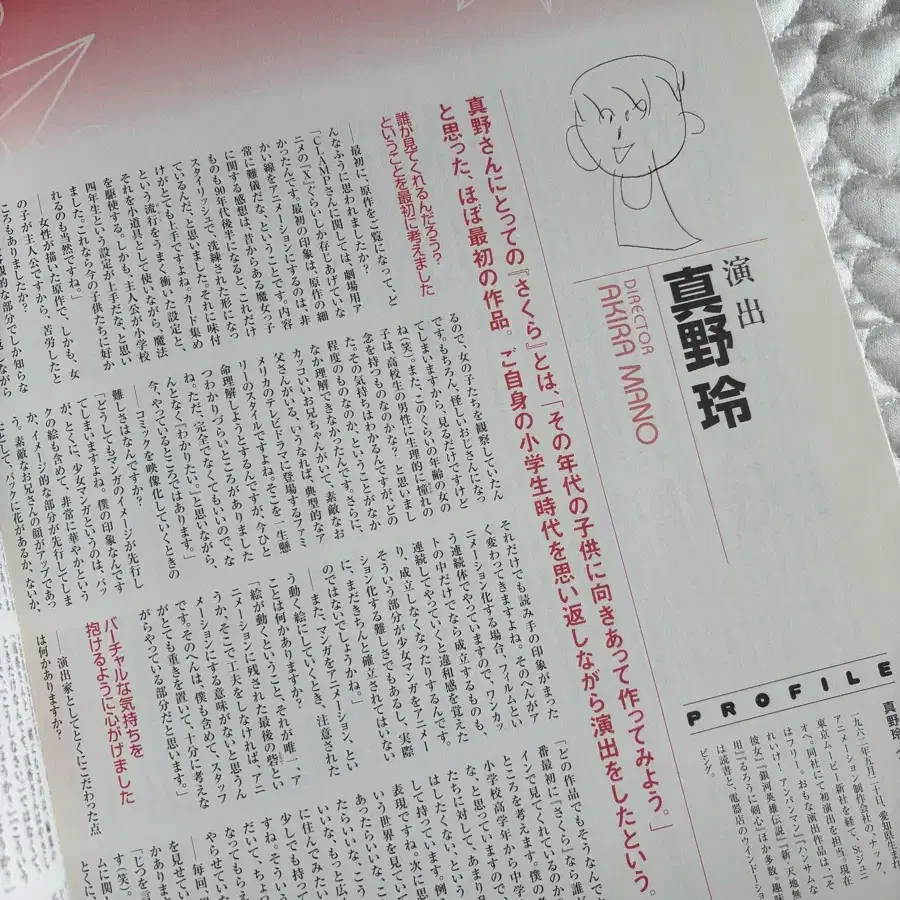 演出
真野 玲
DIRECTOR
AKIRA MANO
真野さんにとっての『さくら』とは、「その年代の子供に向きあって作ってみよう。」
と思った、ほぼ最初の作品。ご自身の小学生時代を思い返しながら演出をしたという。
誰が見てくれるんだろう？
ということを最初に考えました
――最初に、原作をご覧になって、ど
んなふうに思われましたか？
「CLAMPさんに関しては、劇場用ア
ニメの『X』ぐらいしか存じあげていな
かったんです。最初の印象は、原作の細
かい線をアニメーションにするのは、非
常に難儀だな、ということです。内容
に関する感想は、昔からある魔女っ子
ものも90年代後半になると、これだけ
スタイリッシュで、洗練された形になっ
ているんだ、と思いましたね。それに味付
けがとても上手ですよね。カード集め
という流行をうまく衝いた設定と、
それを小道具として使いながら、魔法
を駆使する。しかも、主人公が小学校
四年生という設定が上手だな、と思い
ました。これなら今の子供たちに好か
れるのも当然ですね。」
――女性が描いた原作で、しかも、女
の子が主人公ですから、苦労したと
ころもありましたか？
るので、女の子たちを観察していたん
です。もちろん、怪しいおじさんになっ
てしまいますから、見るだけですけど
ね（笑）。また、このくらいの年齢の女の
子は、高校生の男性に生理的に憧れの
念を持つものなのかな？と思いまし
た。その気持ちはわかるんですが、どの
程度のものなのか、ということがなか
なか理解できなかったんです。さらに、
カッコいいお兄ちゃんがいて、素敵なお
父さんがいる、いうなれば、典型的なア
メリカのテレビドラマに登場するファミ
リーのスタイルですよね。そこを一生懸
命理解しようとするんですが、今ひと
つわかりづらいところがありました
ね。ただ、完全でなくてもいいので、な
んとなく、『わかりたい。』と思いながら、
今、やっているところではあります。」
――コミックを映像化していくときの
難しさはなんですか？
「どうしてもマンガのイメージが先行し
てしまいますよね。僕の印象なんです
が、とくに、少女マンガというのは、バッ
クの絵も含めて、非常に華やかという
か、イメージ的な部分が先行してしま
う。素敵なお兄さんの顔がアップであっ
たとして、バックに花があるか、ないか、
それだけでも読み手の印象がまった
く変わってきますよね。そのへんがア
ニメーション化する場合、フィルムとい
う連続体でやっていますので、ワンカッ
トの中だけでなら成立するものも、
連続してやっていくと違和感を覚えた
り、成立しなくなったりするんです。
そういう部分が少女マンガをアニメー
ション化する難しさでもあるし、実際
に、まだきちんと確立されてはいない
のではないでしょうかね。」
――また、マンガをアニメーション、とい
う動く絵にしていくとき、注意された
ことは何かありますか？
「絵が動くということ、それが唯一、ア
ニメーションに残された最後の砦とい
うか、そこで工夫をしなければ、アニ
メーションにする意味がないと思うん
です。そのへんは、僕も含めて、スタッフ
がとても重きを置いて、十分に考えな
がらやっている部分だと思います。」
バーチャルな気持ちを
抱けるように心がけました
――演出家としてとくにこだわった点
は何かありますか？
「どの作品でもそうなんで
番最初に『さくら』なら誰
インで見てくれているのか
ころを考えます。僕の考
小学校高学年から中学
な、と思っていますので、
たちに対して、あまり
はしたくない、という
して持っています。例
表現ですね。次に思
いう世界を見ていて
あったらいいな、こう
たらいいな、もっと広
に住んでみたい
少しでも持って
すね。そういう
だいて、ちょ
なってもらえ
――毎回、
PROFILE
一九六二年五月二十日、愛知県生まれ
アニメーション制作会社のナック、
東京ムービー新社を経て、St.ジュニ
オへ。同社にて初演出を担当。現在
はフリー。おもな演出作品は、『そ
れいけ！アンパンマン』『ハンサムな
彼女』『銀河英雄伝説』『新・天地無
用』『るろうに剣心』ほか多数。趣味
は読書と、電器店のウィンドーショ
ッピング。